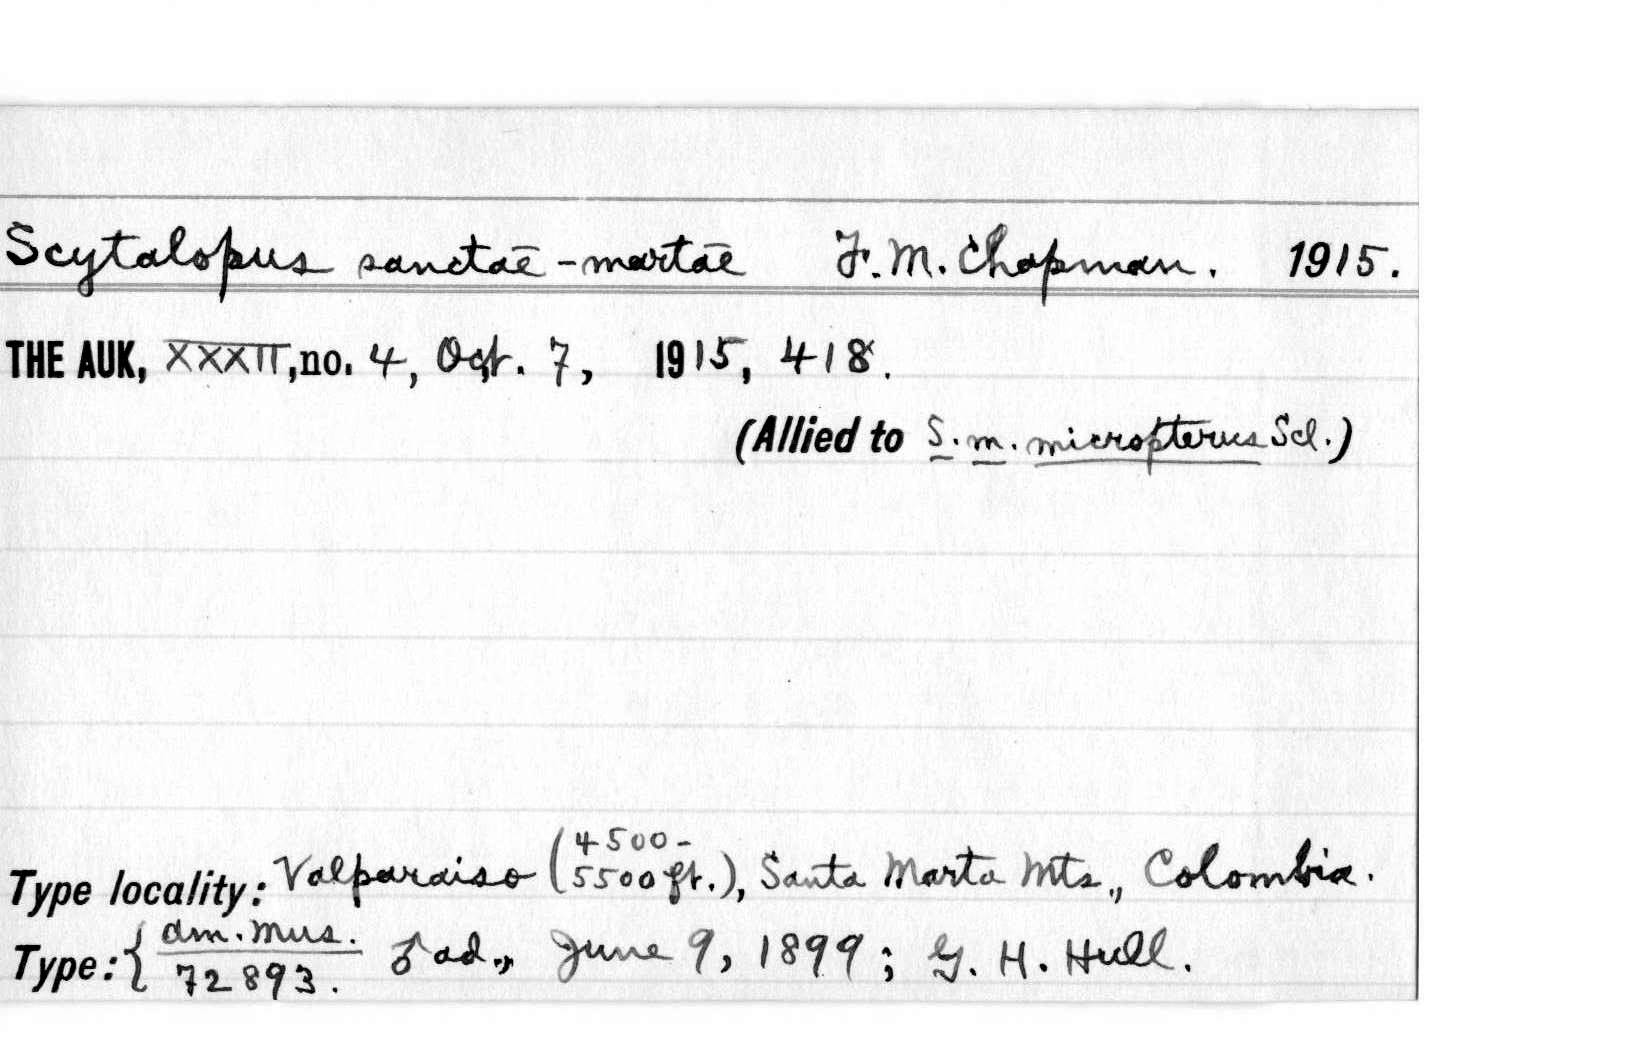 Scytalopus sanctae-martae F. M. Chapman. 1915.
THE AUK, XXXII, no. 4, Oct. 7, 1915, 418.
(Allied to S. m. micropterus Scl.)
Type locality: Valparaiso (4500-
5500 ft.), Santa Marta Mts., Colombia.
Type: { Am. Mus.
72893. ♂ ad., June 9, 1899; G. H. Hull.